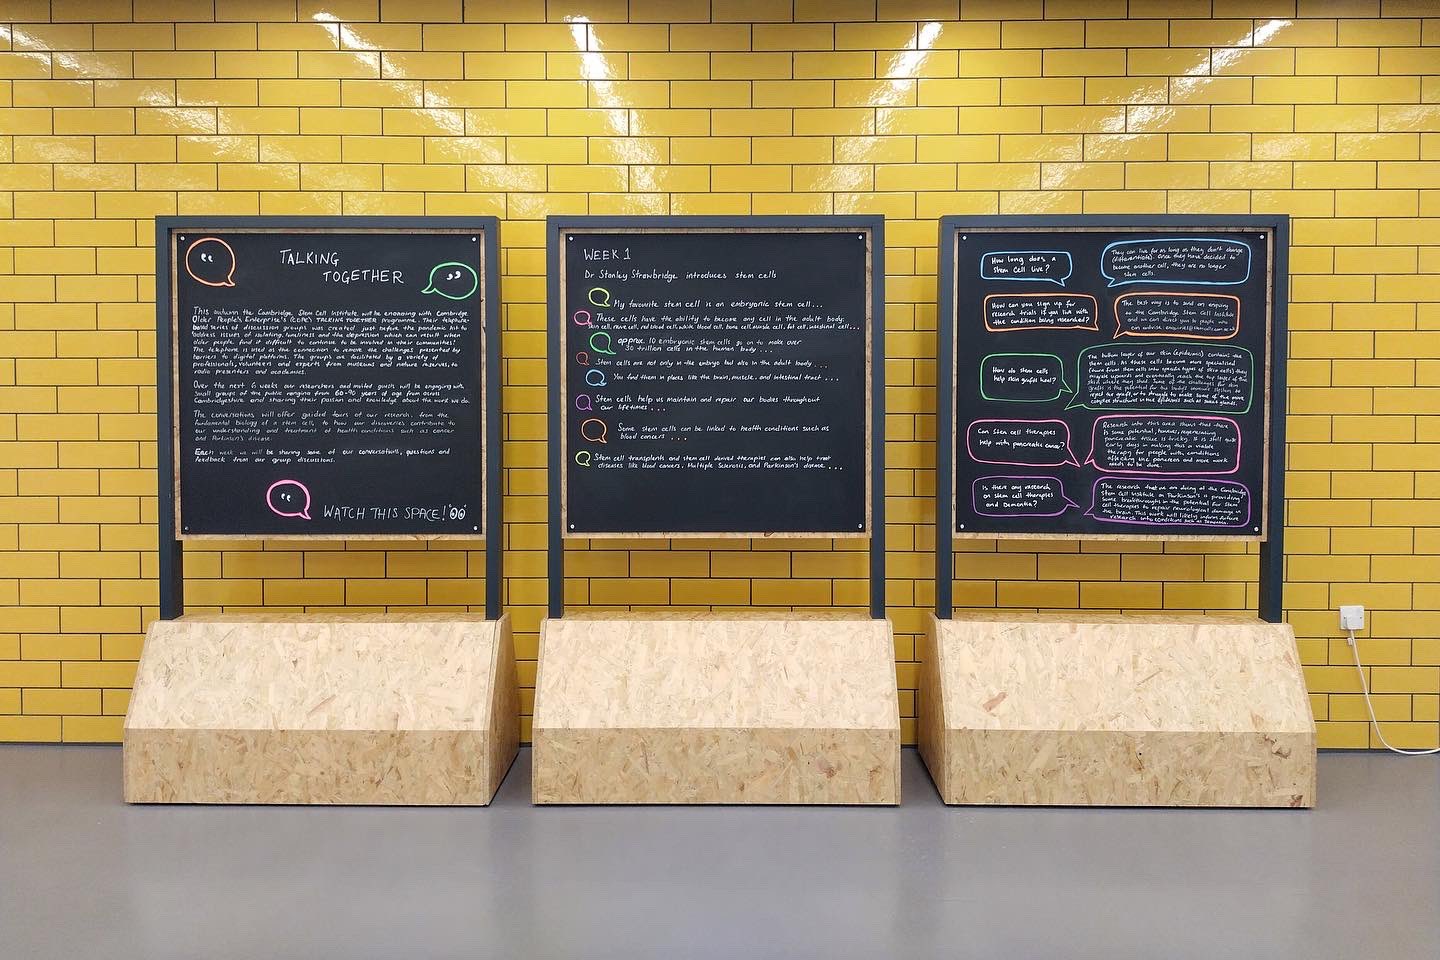 TALKING
TOGETHER
This autumn the Cambridge Stem Cell Institute will be engaging with Cambridge
Older People's Enterprise's (COPE) TALKING TOGETHER programme. Their telephone
based series of discussion groups was created just before the pandemic hit to
address issues of isolation, loneliness and the depression which can result when
older people find it difficult to continue to be involved in their communities!
The telephone is used as the connection to remove the challenges presented by
barriers to digital platforms. The groups are facilitated by a variety of
professionals, volunteers and experts from museums and nature reserves, to
radio presenters and academics.
Over the next 6 weeks our researchers and invited guests will be engaging with
small groups of the public ranging from 60-90 years of age from across
Cambridgeshire and sharing their passion and knowledge about the work we do.
The conversations will offer guided tours of our research, from the
fundamental biology of a stem cell, to how our discoveries contribute to
our understanding and treatment of health conditions such as cancer
and Parkinson's disease.
Each week we will be sharing some of our conversations, questions and
feedback from our group discussions.
WATCH THIS SPACE!
WEEK 1
Dr Stanley Strawbridge introduces stem cells
My favourite stem cell is an embryonic stem cell...
These cells have the ability to become any cell in the adult body:
skin cell, nerve cell, red blood cell, white blood cell, bone cell, muscle cell, fat cell, intestinal cell...
approx. 10 embryonic stem cells go on to make over
30 trillion cells in the human body ...
Stem cells are not only in the embryo but also in the adult body...
You find them in places like the brain, muscle, and intestinal tract ....
Stem cells help us maintain and repair our bodies throughout
our lifetimes ...
Some stem cells can be linked to health conditions such as
blood cancers ...
Stem cell transplants and stem cell derived therapies can also help treat
diseases like blood cancers, Multiple Sclerosis, and Parkinson's disease ...
How long does a
Stem Cell live?
They can live for as long as they don't change
(differentiate). Once they have decided to
become another cell, they are no longer
stem cells.
How can you sign up for
research trials if you live with
the condition being researched?
The best way is to send an enquiry
to the Cambridge Stem Cell Institute
and we can direct you to people who
can advise
How do stem cells
help skin grafts heal?
The bottom layer of our skin (epidermis) contains the
stem cells. As these cells become more specialised
(turned from stem cells into specific types of skin cells) they
migrate upwards and eventually reach the top layer of the
skin where they shed. Some of the challenges for skin
grafts is the potential for the body's immune system to
reject the graft, or to struggle to make some of the more
complex structures in the epidermis such as sweat glands.
Can Stem cell therapies
help with pancreatic cancer?
Research into this area shows that there
is some potential, however, regenerating
pancreatic tissue is tricky. It is still quite
early days in making this a viable
therapy for people with conditions
affecting the pancreas and more work
needs to be done.
Is there any research
on stem cell therapies
and Dementia?
The research that we are doing at the Cambridge
Stem Cell Institute on Parkinson's is providing
some breakthroughs in the potential for stem
cell therapies to repair neurological damage in
the brain. This work will likely inform future
research into conditions such as Dementia.